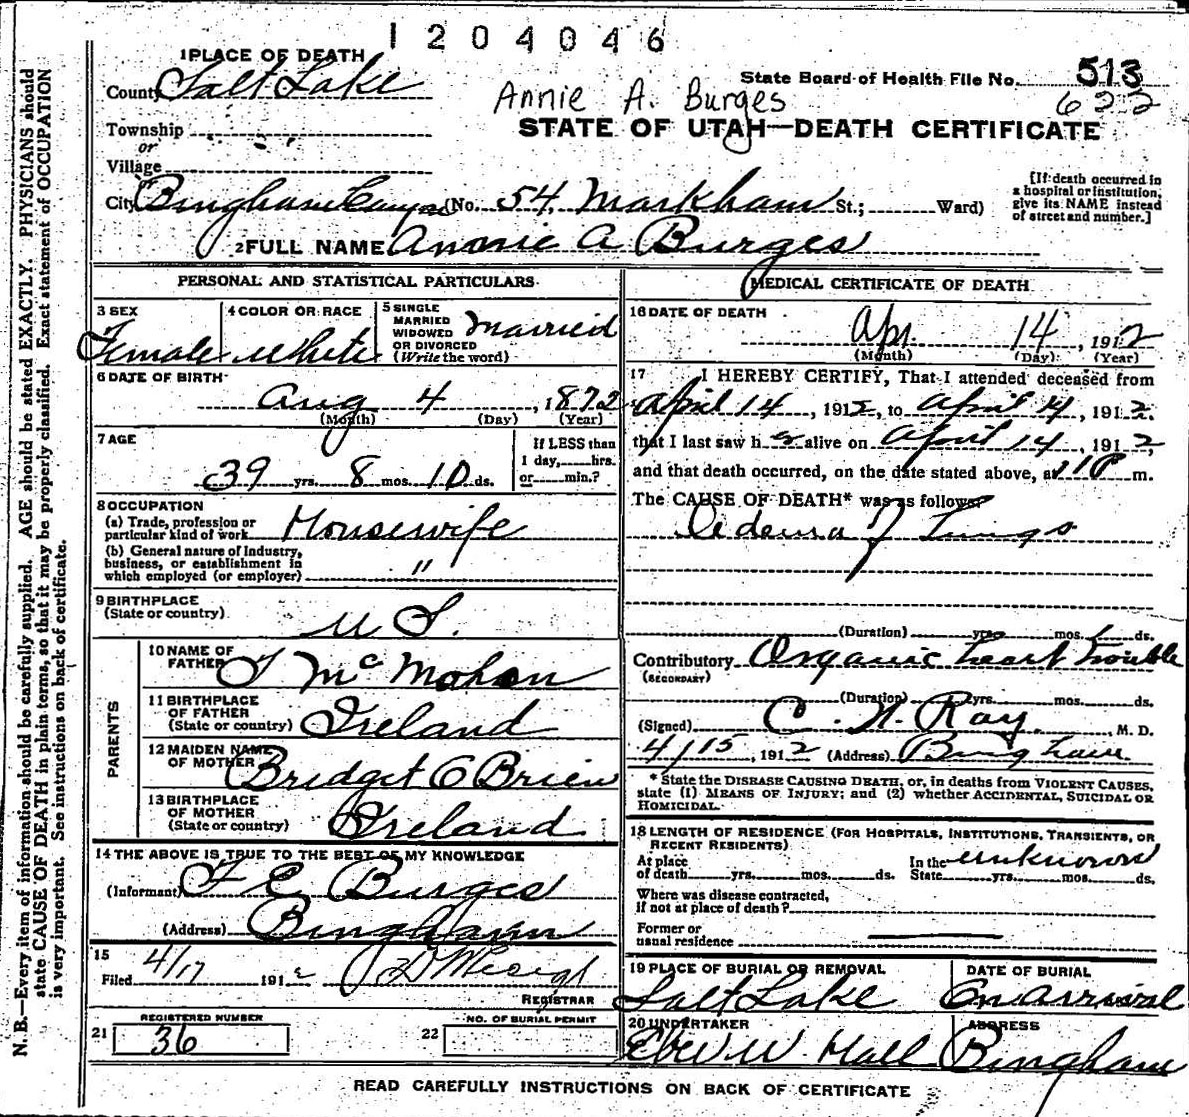 1204046
1 PLACE OF DEATH
State Board of Health File No. 513
County Salt Lake
Annie A. Burges
622
Township
STATE OF UTAH—DEATH CERTIFICATE
or
Village
or
City Bingham Canyon (No. 54 Markham St.; Ward)
[If death occurred in
a hospital or institution,
give its NAME instead
of street and number.]
2 FULL NAME Annie A Burges
PERSONAL AND STATISTICAL PARTICULARS
3 SEX
Female
4 COLOR OR RACE
White
5 SINGLE
MARRIED
WIDOWED
OR DIVORCED
(Write the word)
Married
6 DATE OF BIRTH
Aug 4, 1872
(Month) (Day) (Year)
7 AGE
39 yrs. 8 mos. 10 ds.
If LESS than
1 day, hrs.
or min.?
8 OCCUPATION
(a) Trade, profession or
particular kind of work Housewife
(b) General nature of industry,
business, or establishment in
which employed (or employer) "
9 BIRTHPLACE
(State or country)
U S.
PARENTS
10 NAME OF
FATHER J McMohon
11 BIRTHPLACE
OF FATHER
(State or country) Ireland
12 MAIDEN NAME
OF MOTHER Bridget O Brien
13 BIRTHPLACE
OF MOTHER
(State or country) Ireland
14 THE ABOVE IS TRUE TO THE BEST OF MY KNOWLEDGE
(Informant) F E Burges
(Address) Bingham
15
Filed 4/17 1912
REGISTRAR
REGISTERED NUMBER
21 36
NO. OF BURIAL PERMIT
22
MEDICAL CERTIFICATE OF DEATH
16 DATE OF DEATH
Apr. 14, 1912
(Month) (Day) (Year)
17 I HEREBY CERTIFY, That I attended deceased from
April 14, 1912, to April 14, 1912.
that I last saw her alive on April 14, 1912,
and that death occurred, on the date stated above, at 11 P m.
The CAUSE OF DEATH* was as follows:
Oedema of Lungs
(Duration) yrs. mos. 1 ds.
Contributory Organic heart trouble
(SECONDARY)
(Duration) yrs. mos. ds.
(Signed) C. N. Ray, M. D.
4/15, 1912 (Address) Bingham
* State the DISEASE CAUSING DEATH, or, in deaths from VIOLENT CAUSES,
state (1) MEANS OF INJURY; and (2) whether ACCIDENTAL, SUICIDAL OR
HOMICIDAL.
18 LENGTH OF RESIDENCE (FOR HOSPITALS, INSTITUTIONS, TRANSIENTS, OR
RECENT RESIDENTS)
At place
of death yrs. mos. ds.
In the
State yrs. mos. ds.
unknown
Where was disease contracted,
if not at place of death?
Former or
usual residence
19 PLACE OF BURIAL OR REMOVAL
Salt Lake
DATE OF BURIAL
On arrival
20 UNDERTAKER
Eber W. Hall
ADDRESS
Bingham
READ CAREFULLY INSTRUCTIONS ON BACK OF CERTIFICATE
N. B.—Every item of information should be carefully supplied. AGE should be stated EXACTLY. PHYSICIANS should
state CAUSE OF DEATH in plain terms, so that it may be properly classified. Exact statement of OCCUPATION
is very important. See instructions on back of certificate.